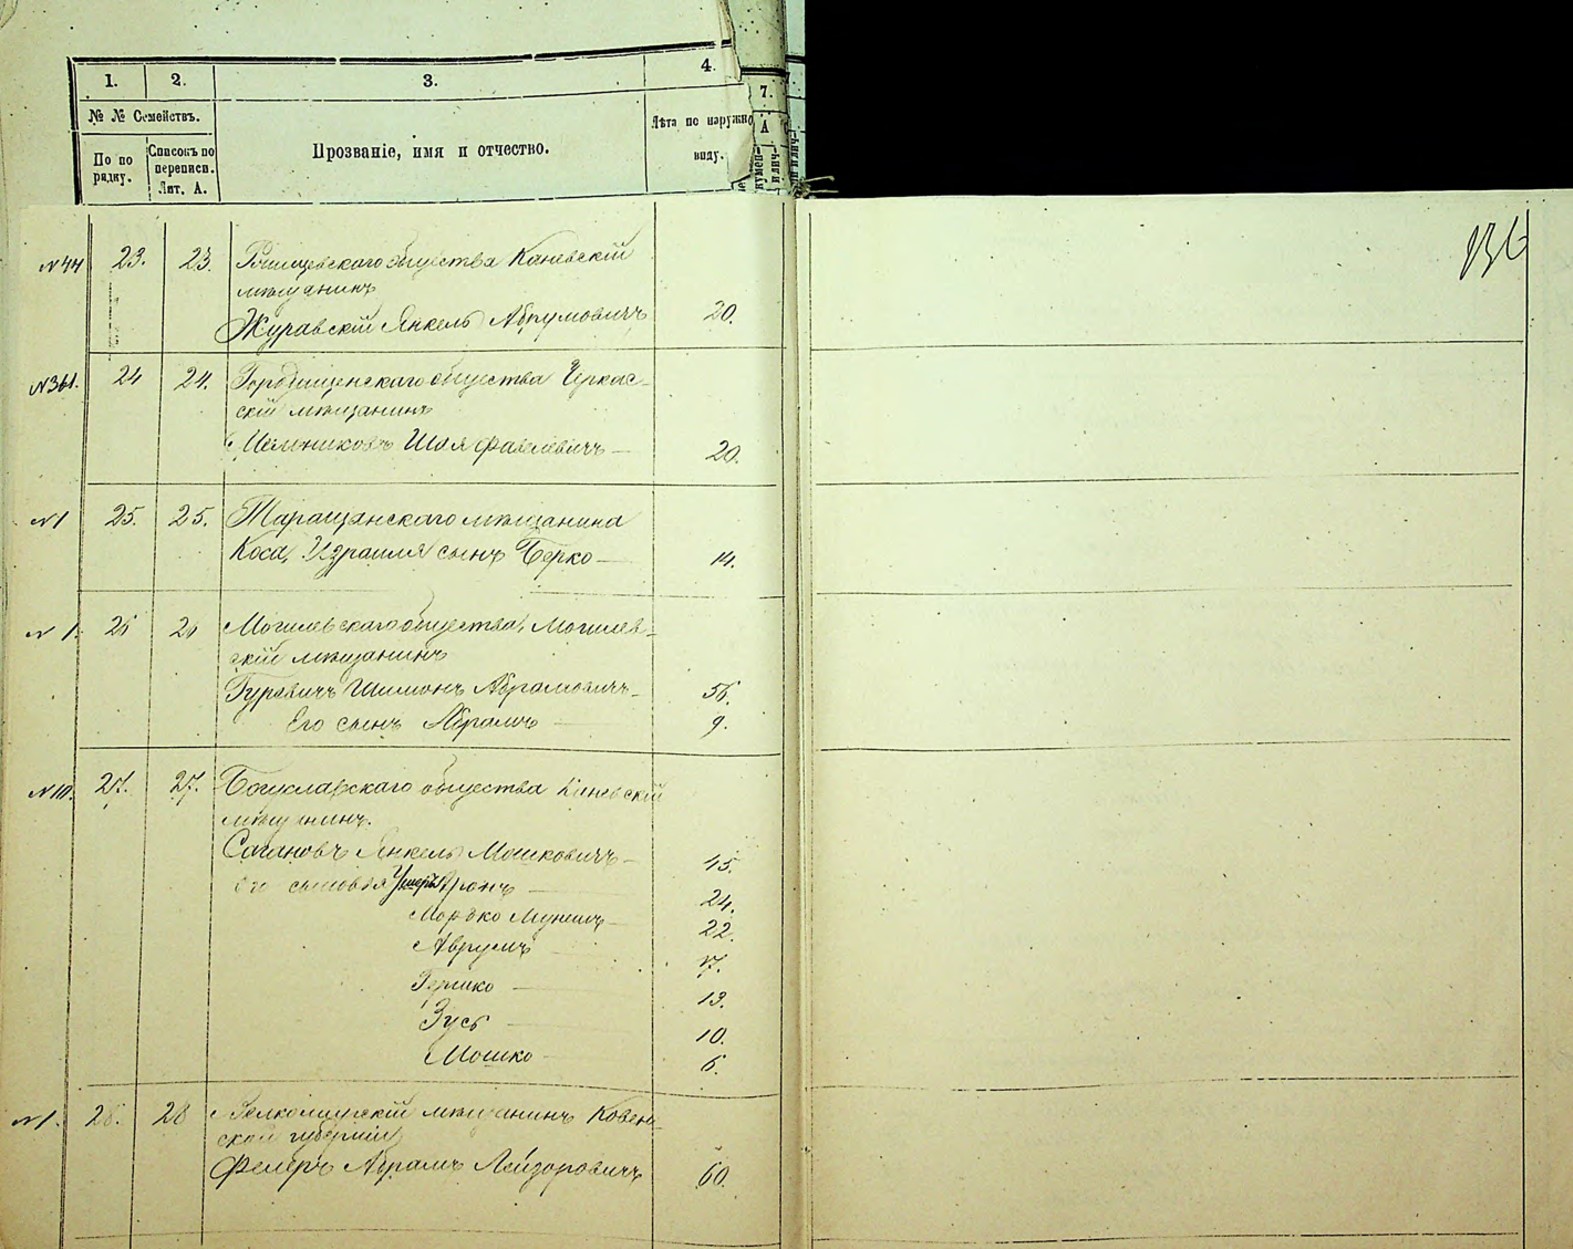 1. 2. 3. 4. 7.
№ № Семействъ. Прозваніе, имя и отчество. Лѣта по наружно А
По по рядку. Списокъ по переписи. Лит. А. виду.
136
N 44 23. 23. Ржищевскаго общества Каневскій
мѣщанинъ
Журавскій Янкель Абрумовичъ 20.
N 361. 24 24. Городищенскаго общества Черкас-
скій мѣщанинъ
Мельниковъ Шая Фавелевичъ — 20.
N 1 25. 25. Таращанскаго мѣщанина
Коса, Израиля сынъ Берко — 14.
N 1. 26 26 Могилевскаго общества, Могилев-
скій мѣщанинъ
Гуревичъ Шимонъ Абрамовичъ — 56.
Его сынъ Абрамъ — 9.
N 10. 27. 27. Богуславскаго общества Каневскій
мѣщанинъ.
Сагановъ Янкель Мошковичъ — 45.
его сыновья Умеръ Аронъ — 24.
Мордко Мунишъ — 22.
Аврумъ — 17.
Гершко — 13.
Зусь — 10.
Мошко — 6.
N 1. 28. 28 Вилкомирскій мѣщанинъ Ковен-
ской губерніи
Фелеръ Абрамъ Лейзоровичъ 60.